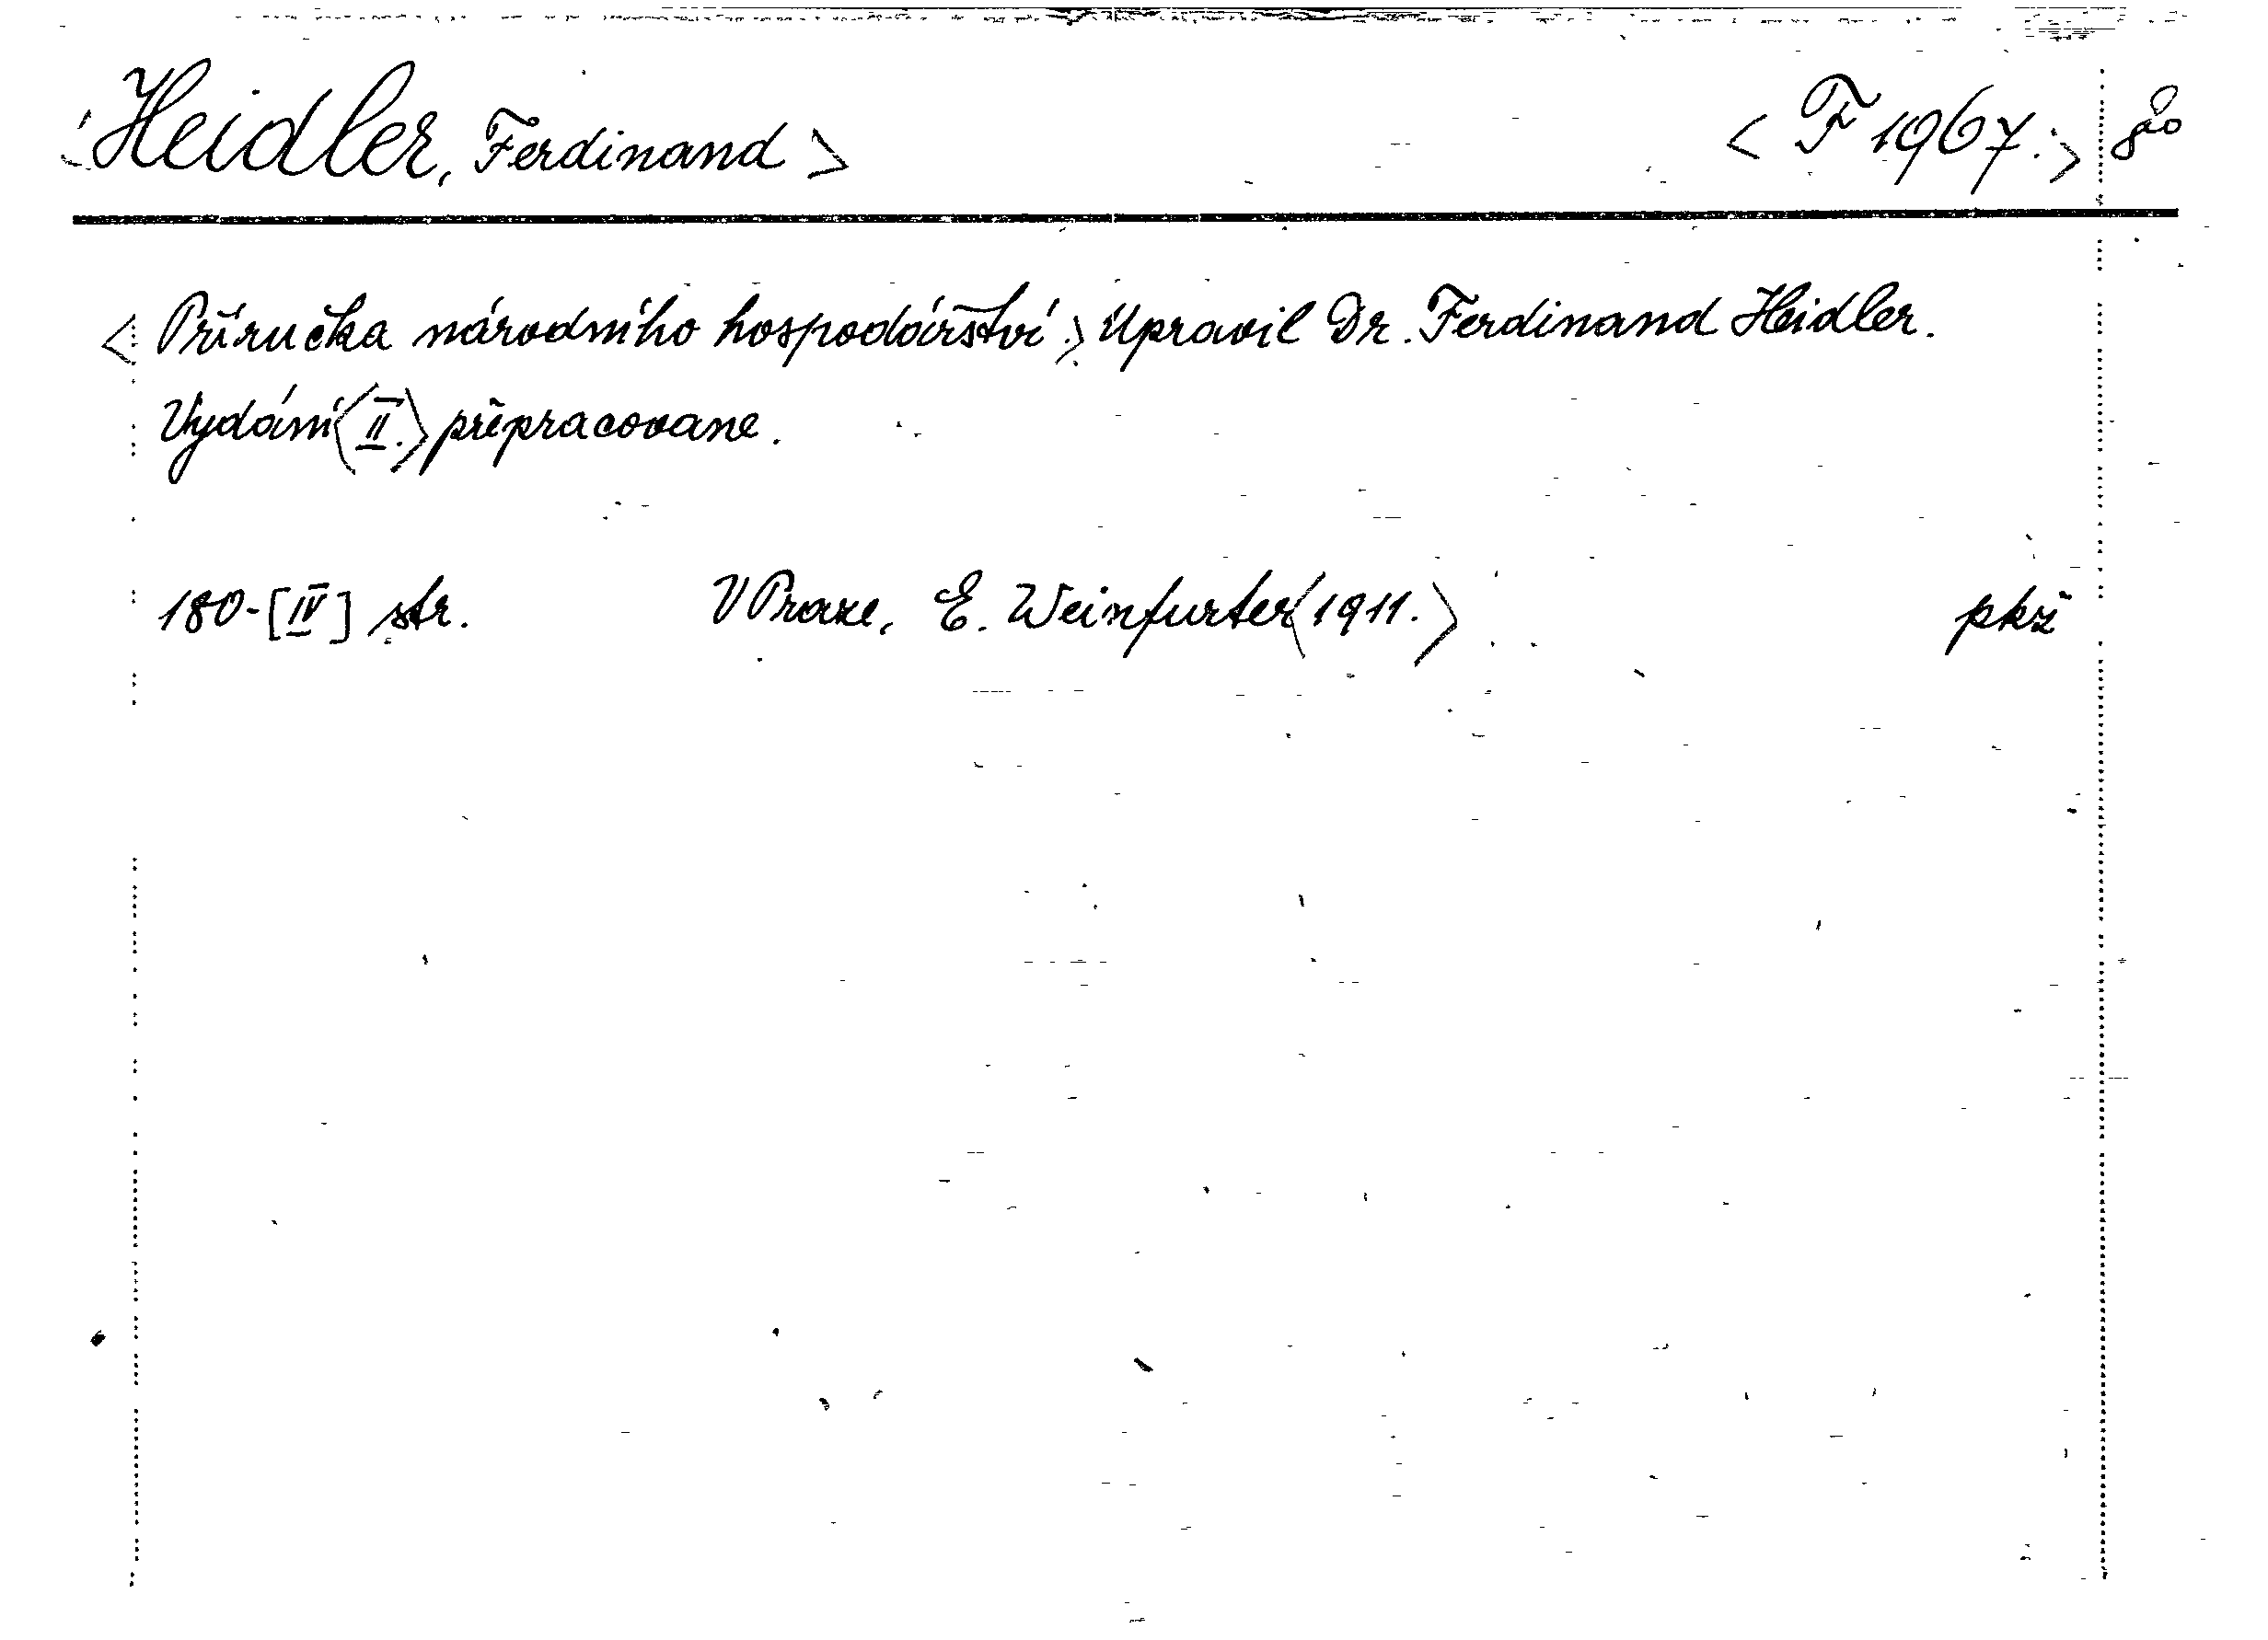 <Heidler, Ferdinand> <F 1967.> 8o
<Příručka národního hospodářství.> Upravil Dr. Ferdinand Heidler.
Vydání <II.> přepracovane.
180-[IV] str. V Praze, E. Weinfurter <1911.> pkž